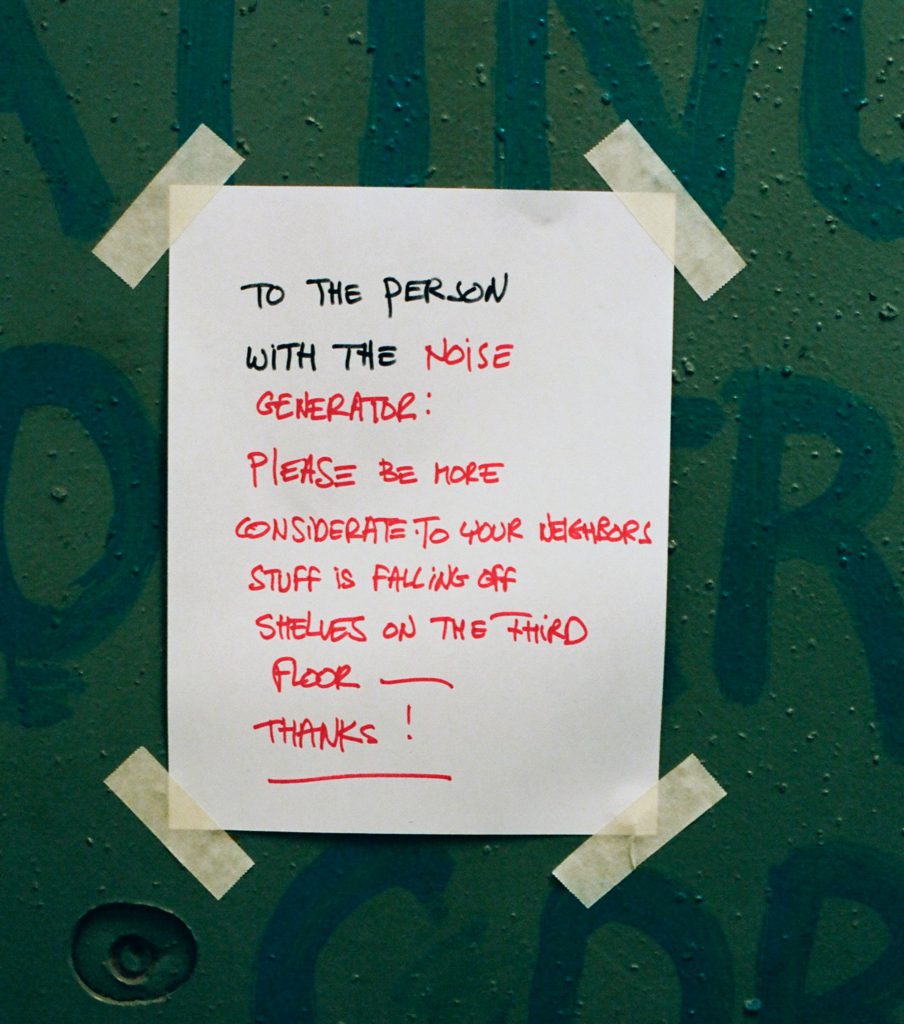 TO THE PERSON
WITH THE NOISE
GENERATOR:
PLEASE BE MORE
CONSIDERATE TO YOUR NEIGHBORS
STUFF IS FALLING OFF
SHELVES ON THE THIRD
FLOOR —
THANKS!